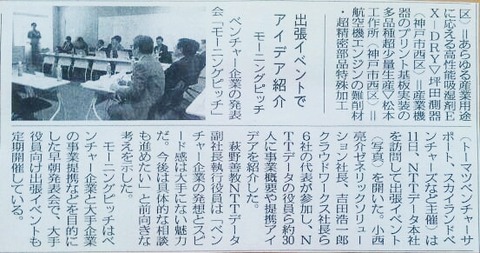 区〉＝あらゆる産業用途
に応える高性能吸湿剤E
X―DRY▽坪田測器
〈神戸市西区〉＝産業機
器のプリント基板実装の
多品種超少量生産▽松本
工作所〈神戸市西区〉＝
航空機エンジンの難削材
・超精密部品特殊加工
出張イベントで
アイデア紹介
モーニングピッチ
ベンチャー企業の発表
会「モーニングピッチ」
（トーマツベンチャーサ
ポート、スカイランドベ
ンチャーズなど主催）は
11日、NTTデータ本社
を訪問して出張イベント
（写真）を開いた。小西
亮介ゼネリックソリュー
ション社長、吉田浩一郎
クラウドワークス社長ら
6社の代表が参加し、N
TTデータの役員ら約30
人に事業概要や提携アイ
デアを紹介した。
萩野善教NTTデータ
副社長執行役員は「ベン
チャー企業の発想とスピ
ード感は大手にない魅力
だ。今後は具体的な相談
も進めたい」と前向きな
考えを示した。
モーニングピッチはベ
ンチャー企業と大手企業
の事業提携などを目的に
した早朝発表会で、大手
役員向け出張イベントも
定期開催している。